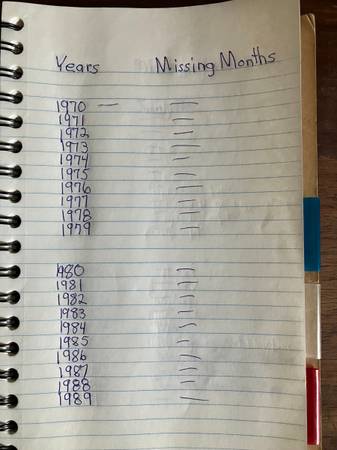 Years Missing Months
1970 — —
1971 —
1972 —
1973 —
1974 —
1975 —
1976 —
1977 —
1978 —
1979 —
1980 —
1981 —
1982 —
1983 —
1984 —
1985 —
1986 —
1987 —
1988 —
1989 —